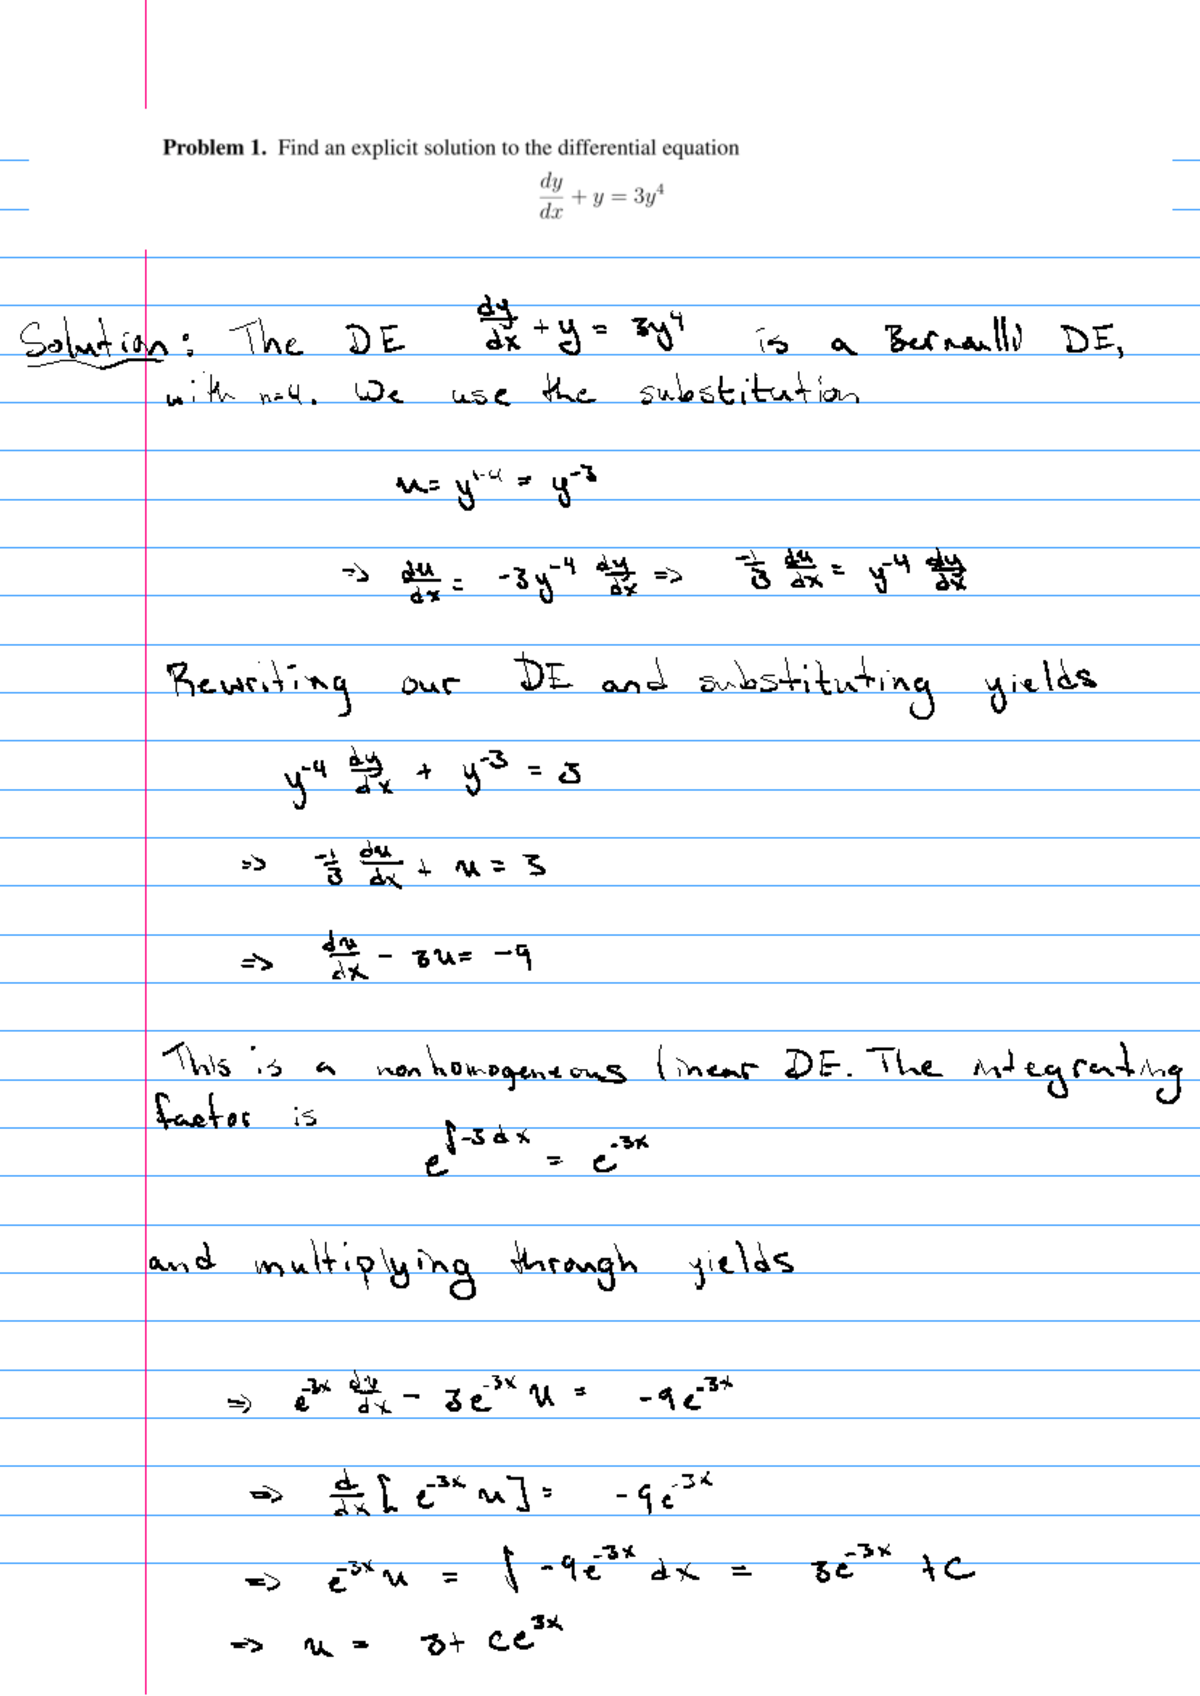 Problem 1. Find an explicit solution to the differential equation
dy/dx + y = 3y⁴
Solution: The DE dy/dx + y = 3y⁴ is a Bernoulli DE,
with n=4. We use the substitution
u = y¹⁻⁴ = y⁻³
⇒ du/dx = -3y⁻⁴ dy/dx ⇒ -1/3 du/dx = y⁻⁴ dy/dx
Rewriting our DE and substituting yields
y⁻⁴ dy/dx + y⁻³ = 3
⇒ -1/3 du/dx + u = 3
⇒ du/dx - 3u = -9
This is a nonhomogeneous linear DE. The integrating
factor is
e^∫-3dx = e^-3x
and multiplying through yields
⇒ e^-3x du/dx - 3e^-3x u = -9e^-3x
⇒ d/dx [e^-3x u] = -9e^-3x
⇒ e^-3x u = ∫ -9e^-3x dx = 3e^-3x + C
⇒ u = 3 + Ce^3x